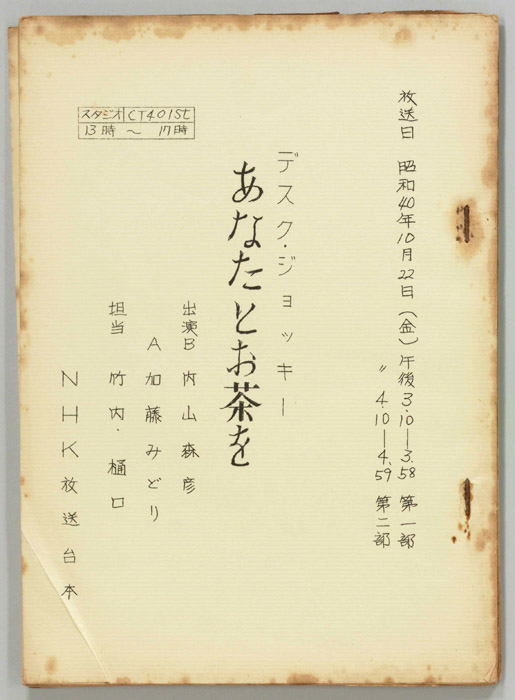 放送日 昭和40年10月22日(金)午後3.10―3.58 第一部
〃 4.10―4.59 第二部
デスク・ジョッキー
あなたとお茶を
出演B 内山森彦
A 加藤みどり
担当 竹内・樋口
NHK放送台本
スタジオ CT401St
13時～17時